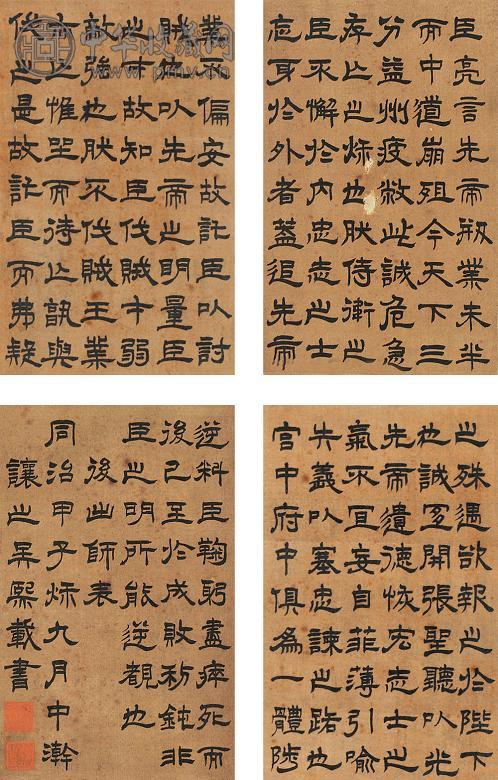 臣亮言先帝剏業未半
而中道崩殂今天下三
分益州疲敝此誠危急
存亡之秌也肰侍衛之
臣不懈於内忠志之士
忘身於外者蓋追先帝
之殊遇欲報之於陛下
也誠宜開張聖聽以光
先帝遺德恢宏志士之
氣不宜妄自菲薄引喻
失義以塞忠諫之路也
宮中府中俱為一體陟
業不偏安故託臣以討
賊也以先帝之明量臣
之才故知臣伐賊才弱
敵強也肰不伐賊王業
亦亡惟坐而待亡孰與
伐之是故託臣而弗疑
逆料臣鞠躬盡瘁死而
後已至於成敗利鈍非
臣之明所能逆覩也
後出師表
同治甲子秌九月中澣
讓之吳熙載書
中华收藏网
www.pmv.cn